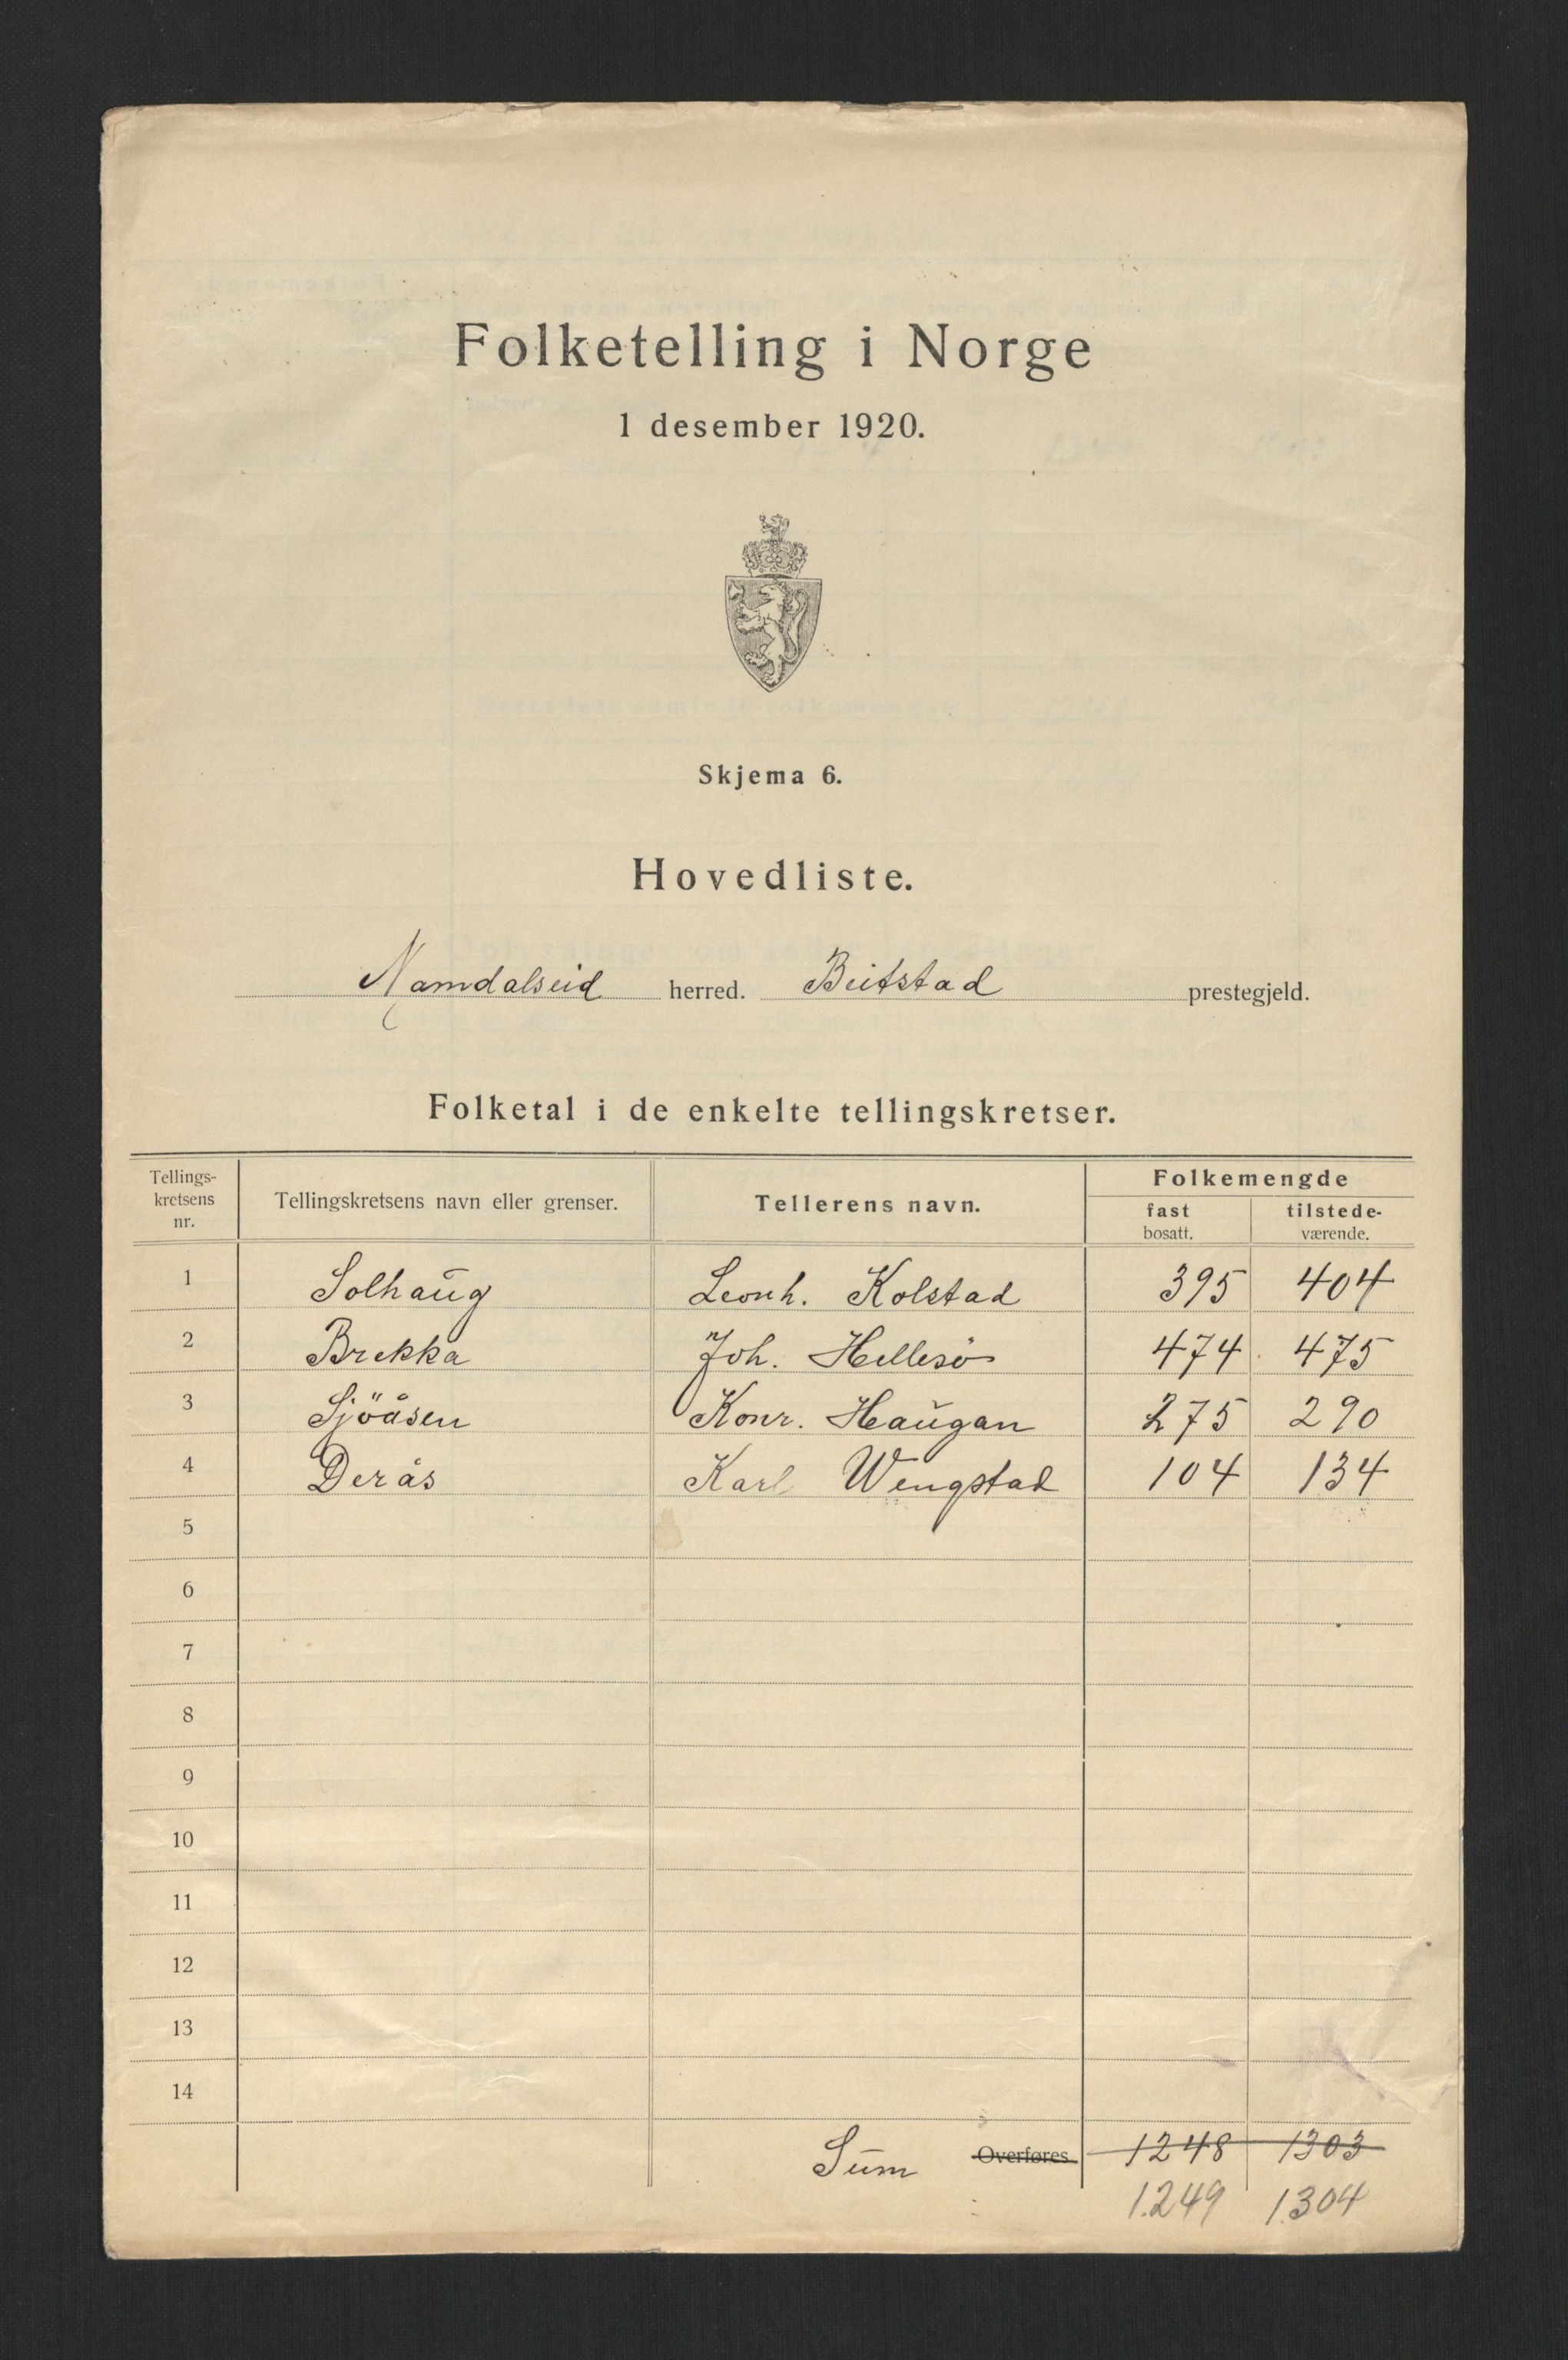 Folketelling i Norge
1 desember 1920.
Skjema 6.
Hovedliste.
Namdalseid herred. Beitstad prestegjeld.
Folketal i de enkelte tellingskretser.
Tellings-kretsens nr. Tellingskretsens navn eller grenser. Tellerens navn. Folkemengde fast bosatt. tilstede-værende.
1 Solhaug Leonh. Kolstad 395 404
2 Brekka Joh. Hellesö 474 475
3 Sjöåsen Konr. Haugan 275 290
4 Derås Karl Wengstad 104 134
5
6
7
8
9
10
11
12
13
14
Sum Overføres 1248 1303
1.249 1.304